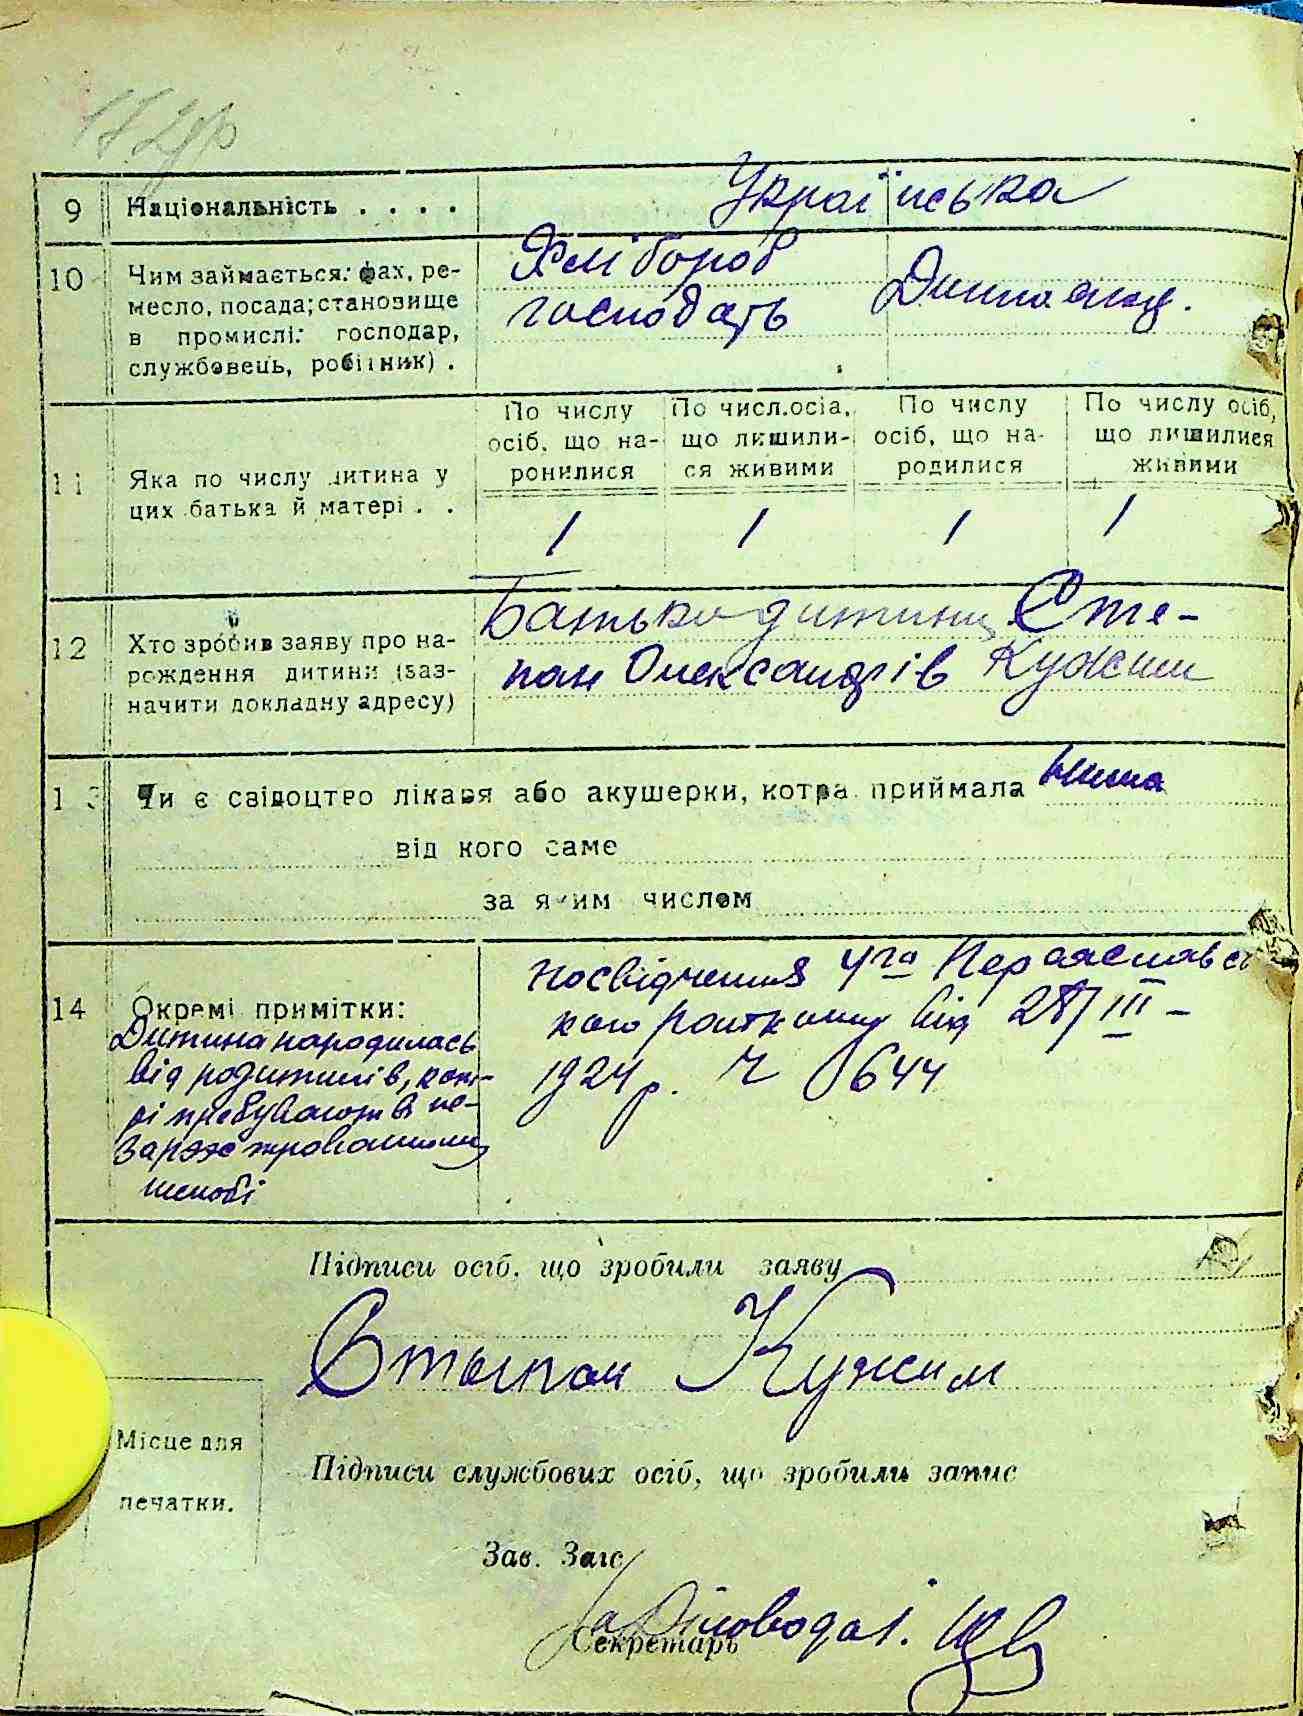 172зр
9 Національність . . . . Українська
10 Чим займається: фах, ре-
месло, посада; становище
в промислі: господар,
службовець, робітник) .
Хлібороб
господарь
11 Яка по числу дитина у
цих батька й матері . .
По числу
осіб, що на-
ронилися
По числ.осіа,
що лишили-
ся живими
По числу
осіб, що на-
родилися
По числу осіб,
що лишилися
живими
1 1 1 1
12 Хто зробив заяву про на-
рождення дитини (заз-
начити докладну адресу)
Батько дитини Сте-
пан Олександрів Кужим
13 Чи є свідоцтво лікаря або акушерки, котра приймала Нима
від кого саме
за яким числом
14 Окремі примітки:
Дитина народилась
від родителів, кот-
рі пребувають в не-
зарэєстрованному
шлюбі
посвідчення Ч го Переяславсь
кого від 28/III -
1924 р. Ч 0644
Підписи осіб, що зробили заяву
Стыпан Кужим
Місце для
печатки.
Підписи службових осіб, що зробили запис
Зав. Загс
За Діловода
Секретарь